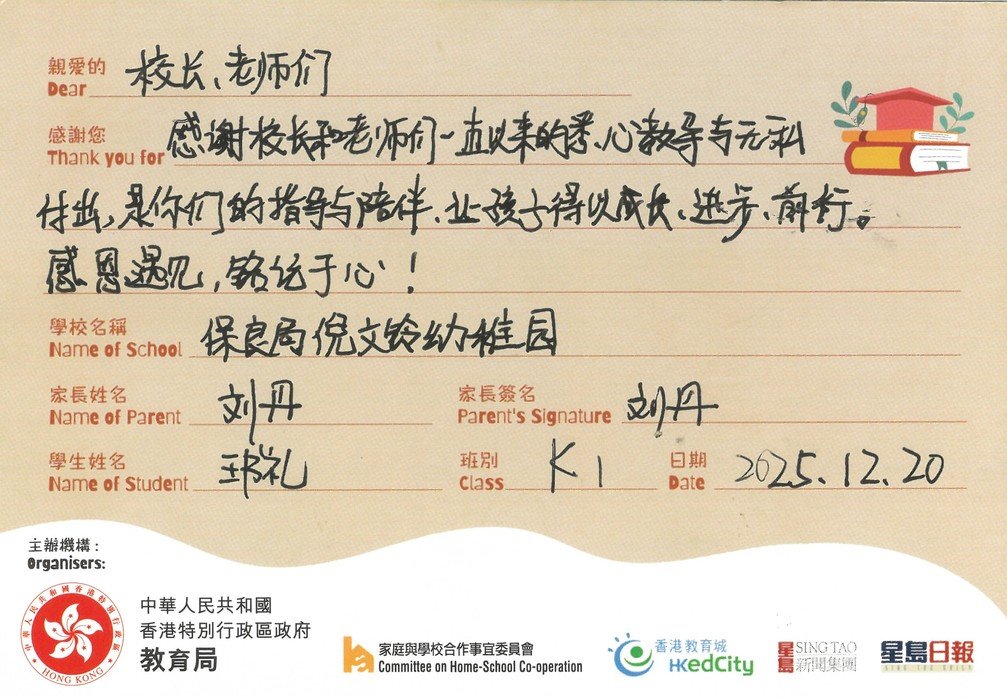 親愛的 校长、老师们
Dear
感謝您 感谢校长和老师们一直以来的悉心教导与无私
Thank you for
付出，是你们的指导与陪伴、让孩子得以成长、进步、前行。
感恩遇见，铭记于心！
學校名稱 保良局倪文铃幼稚园
Name of School
家長姓名 刘丹 家長簽名 刘丹
Name of Parent Parent's Signature
學生姓名 礼 班別 K1 日期 2025.12.20
Name of Student Class Date
主辦機構：
Organisers:
中華人民共和國香港特別行政區
HONG KONG
中華人民共和國
香港特別行政區政府
教育局
家庭與學校合作事宜委員會
Committee on Home-School Co-operation
香港教育城
HKedCity
星島 SING TAO
新聞集團
星島日報
SING TAO DAILY